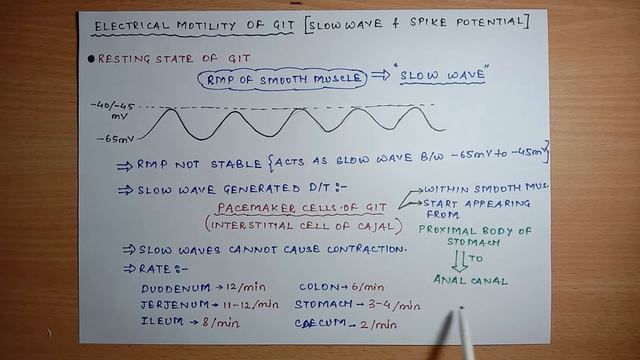 ELECTRICAL MOTILITY OF GIT [SLOW WAVE & SPIKE POTENTIAL]
● RESTING STATE OF GIT
RMP OF SMOOTH MUSCLE ⇒ "SLOW WAVE"
-40/-45
mV
-65mV
⇒ RMP NOT STABLE {ACTS AS SLOW WAVE B/W -65mV to -45mV}
⇒ SLOW WAVE GENERATED D/T :-
PACEMAKER CELLS OF GIT
(INTERSTITIAL CELL OF CAJAL)
→ WITHIN SMOOTH MUS.
→ START APPEARING
FROM
PROXIMAL BODY OF
STOMACH
⇓ TO
ANAL CANAL
⇒ SLOW WAVES CANNOT CAUSE CONTRACTION.
⇒ RATE :-
DUODENUM → 12/min COLON → 6/min
JERJENUM → 11-12/min STOMACH → 3-4/min
ILEUM → 8/min CAECUM → 2/min